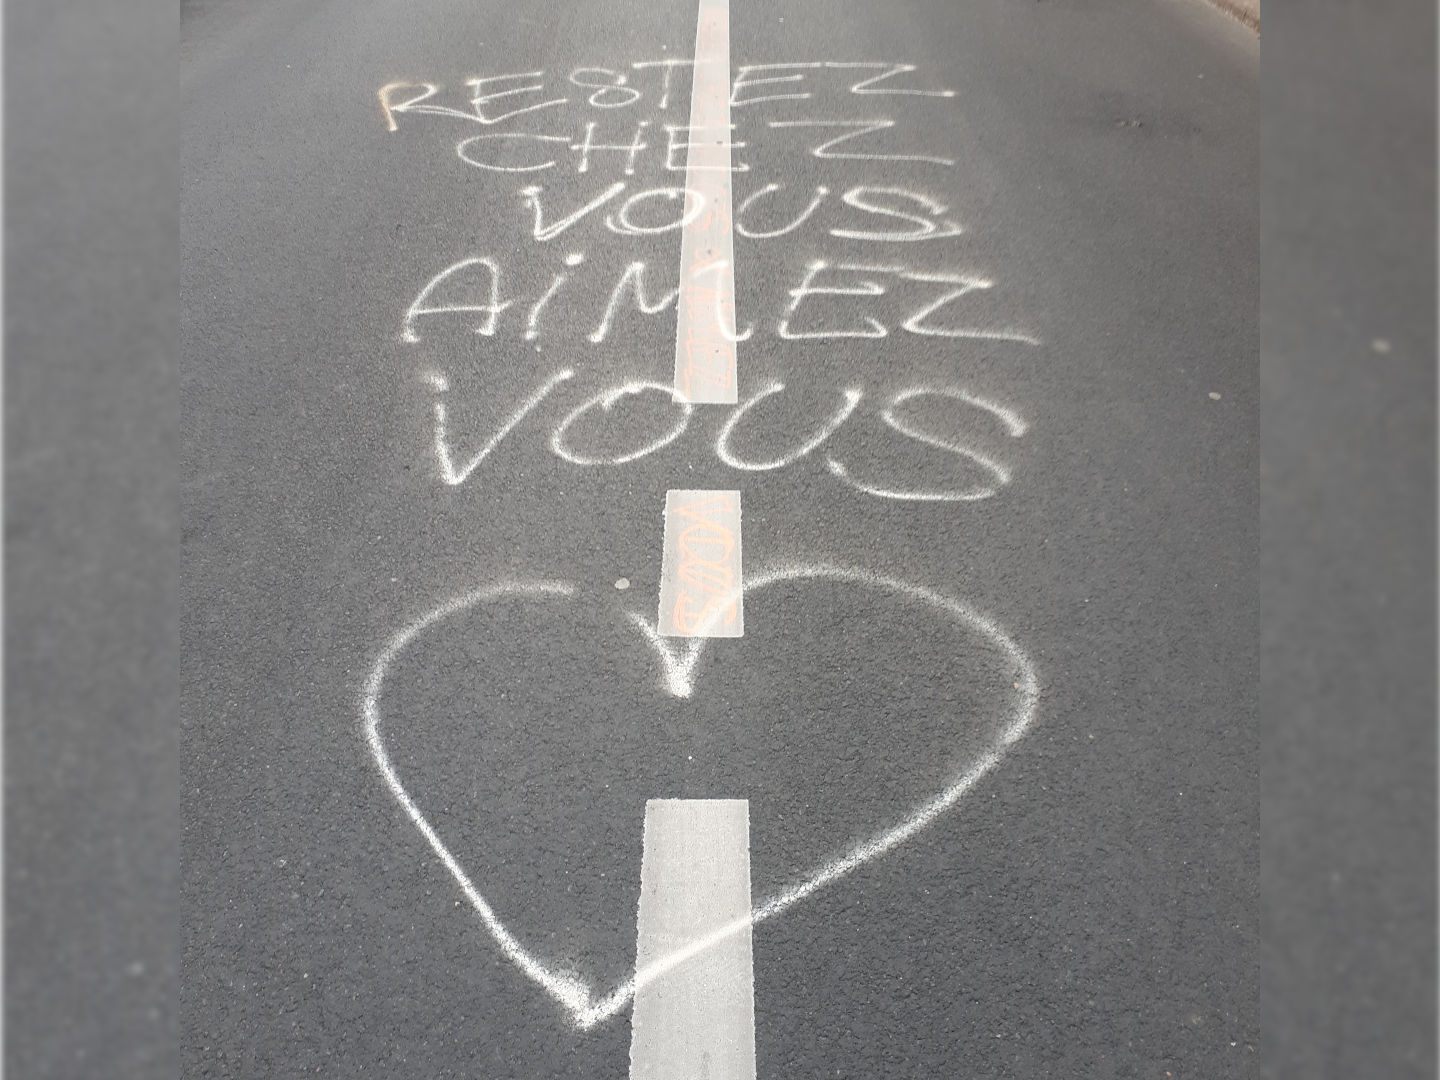 RESTEZ
CHEZ
VOUS
AiMEZ
VOUS